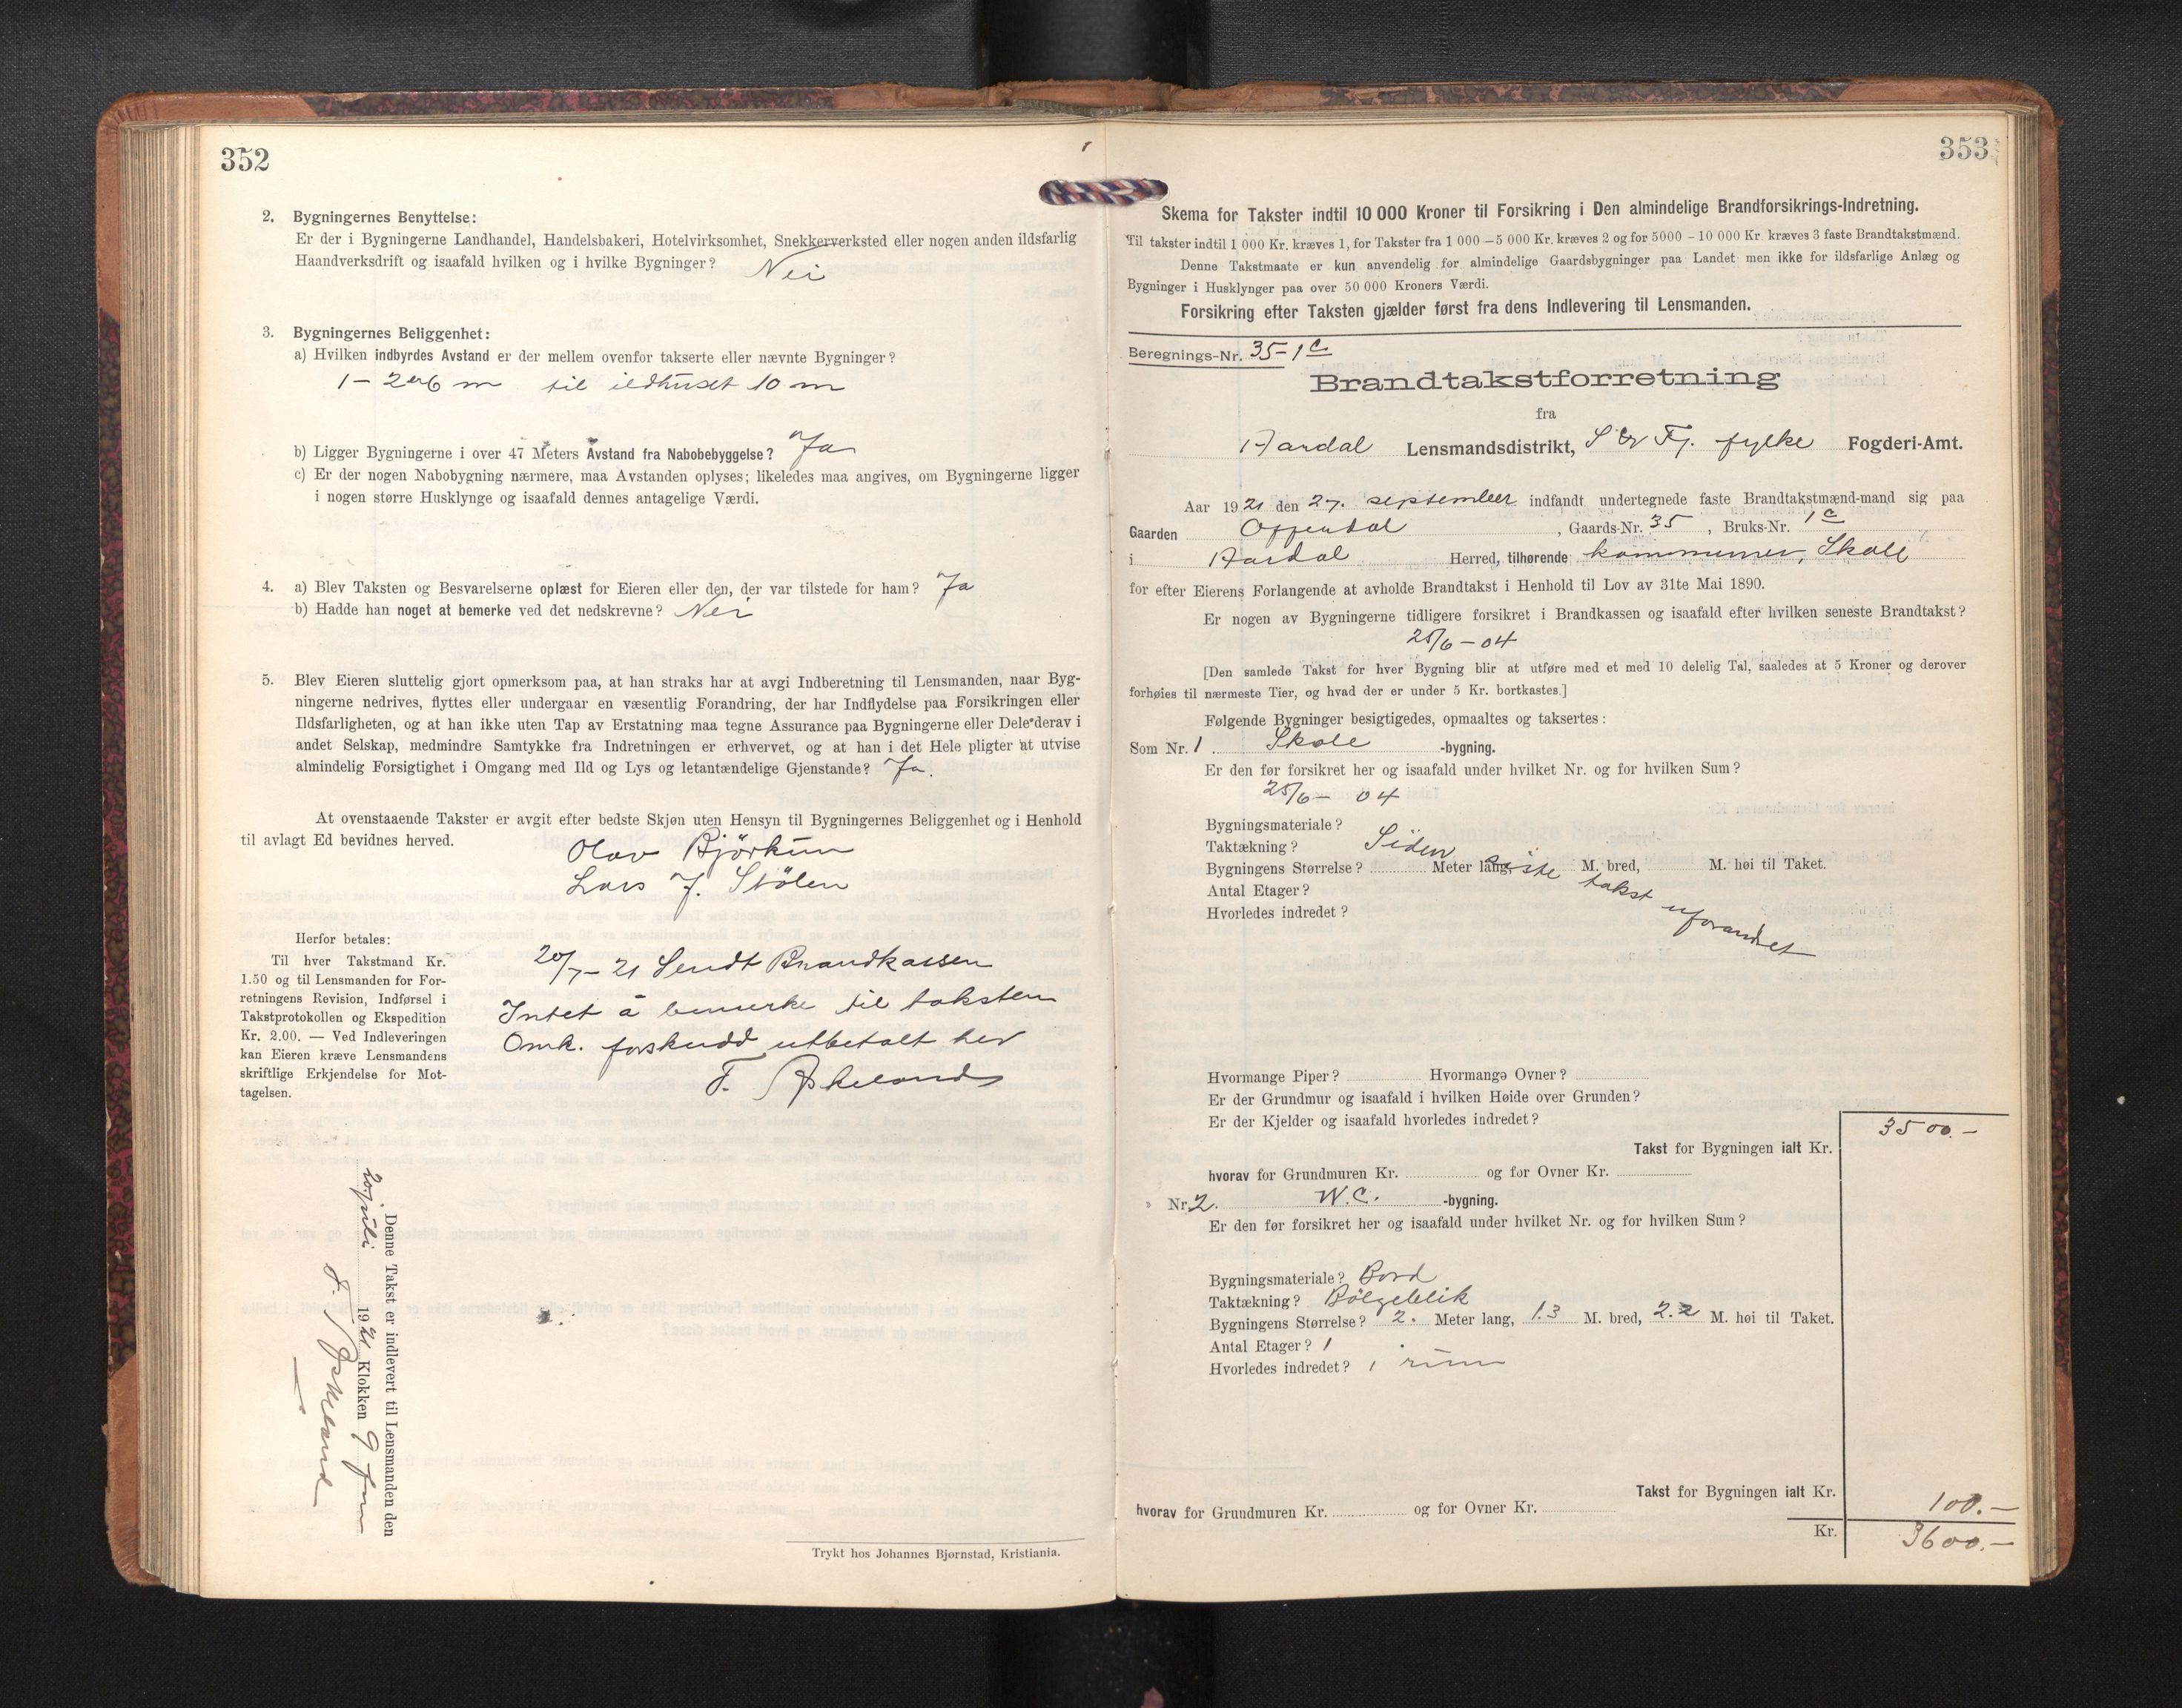 352
2. Bygningernes Benyttelse:
Er der i Bygningerne Landhandel, Handelsbakeri, Hotelvirksomhet, Snekkerverksted eller nogen anden ildsfarlig
Haandverksdrift og isaafald hvilken og i hvilke Bygninger? Nei
3. Bygningernes Beliggenhet:
a) Hvilken indbyrdes Avstand er der mellem ovenfor takserte eller nævnte Bygninger?
1 – 2 6 m til ildhuset 10 m
b) Ligger Bygningerne i over 47 Meters Avstand fra Nabobebyggelse? Ja
c) Er der nogen Nabobygning nærmere, maa Avstanden oplyses; likeledes maa angives, om Bygningerne ligger
i nogen større Husklynge og isaafald dennes antagelige Værdi.
4. a) Blev Taksten og Besvarelserne oplæst for Eieren eller den, der var tilstede for ham? Ja
b) Hadde han noget at bemerke ved det nedskrevne? Nei
5. Blev Eieren sluttelig gjort opmerksom paa, at han straks har at avgi Indberetning til Lensmanden, naar Byg-
ningerne nedrives, flyttes eller undergaar en væsentlig Forandring, der har Indflydelse paa Forsikringen eller
Ildsfarligheten, og at han ikke uten Tap av Erstatning maa tegne Assurance paa Bygningerne eller Dele derav i
andet Selskap, medmindre Samtykke fra Indretningen er erhvervet, og at han i det Hele pligter at utvise
almindelig Forsigtighet i Omgang med Ild og Lys og letantændelige Gjenstande? Ja.
At ovenstaaende Takster er avgit efter bedste Skjøn uten Hensyn til Bygningernes Beliggenhet og i Henhold
til avlagt Ed bevidnes herved.
Olav Bjørkum
Lars J. Stølen
Herfor betales:
Til hver Takstmand Kr.
1.50 og til Lensmanden for For-
retningens Revision, Indførsel i
Takstprotokollen og Ekspedition
Kr. 2.00. — Ved Indleveringen
kan Eieren kræve Lensmandens
skriftlige Erkjendelse for Mot-
tagelsen.
20/7 – 21 Sendt Brandkassen
Intet å bemerke til taksten
Omk. forskudd utbetalt her
F. Askeland
Denne Takst er indlevert til Lensmanden den
20 juli 1921 Klokken 9 fm
F. Askeland
Trykt hos Johannes Bjørnstad, Kristiania.
353
Skema for Takster indtil 10 000 Kroner til Forsikring i Den almindelige Brandforsikrings-Indretning.
Til takster indtil 1 000 Kr. kræves 1, for Takster fra 1 000 – 5 000 Kr. kræves 2 og for 5000 – 10 000 Kr. kræves 3 faste Brandtakstmænd.
Denne Takstmaate er kun anvendelig for almindelige Gaardsbygninger paa Landet men ikke for ildsfarlige Anlæg og
Bygninger i Husklynger paa over 50 000 Kroners Værdi.
Forsikring efter Taksten gjælder først fra dens Indlevering til Lensmanden.
Beregnings-Nr. 35 – 1 c
Brandtakstforretning
fra
Aardal Lensmandsdistrikt, S og Fj. fylke Fogderi-Amt.
Aar 1921 den 27. september indfandt undertegnede faste Brandtakstmænd-mand sig paa
Gaarden Offerdal, Gaards-Nr. 35, Bruks-Nr. 1 c
i Aardal Herred, tilhørende kommunen, Skole
for efter Eierens Forlangende at avholde Brandtakst i Henhold til Lov av 31te Mai 1890.
Er nogen av Bygningerne tidligere forsikret i Brandkassen og isaafald efter hvilken seneste Brandtakst?
25/6 – 04
[Den samlede Takst for hver Bygning blir at utføre med et med 10 delelig Tal, saaledes at 5 Kroner og derover
forhøies til nærmeste Tier, og hvad der er under 5 Kr. bortkastes.]
Følgende Bygninger besigtigedes, opmaaltes og taksertes:
Som Nr. 1. Skole -bygning.
Er den før forsikret her og isaafald under hvilket Nr. og for hvilken Sum?
25/6 – 04
Bygningsmateriale?
Taktækning? Siden siste takst uforandret
Bygningens Størrelse? Meter lang, M. bred, M. høi til Taket.
Antal Etager?
Hvorledes indredet?
Hvormange Piper? Hvormange Ovner?
Er der Grundmur og isaafald i hvilken Høide over Grunden?
Er der Kjelder og isaafald hvorledes indredet?
Takst for Bygningen ialt Kr. 3500.–
hvorav for Grundmuren Kr. og for Ovner Kr.
» Nr. 2. W.C. -bygning.
Er den før forsikret her og isaafald under hvilket Nr. og for hvilken Sum?
Bygningsmateriale? Bord
Taktækning? Bølgeblik
Bygningens Størrelse? 2. Meter lang, 1.3 M. bred, 2.2 M. høi til Taket.
Antal Etager? 1
Hvorledes indredet? 1 rum
Takst for Bygningen ialt Kr. 100.–
hvorav for Grundmuren Kr. og for Ovner Kr.
Kr. 3600.–